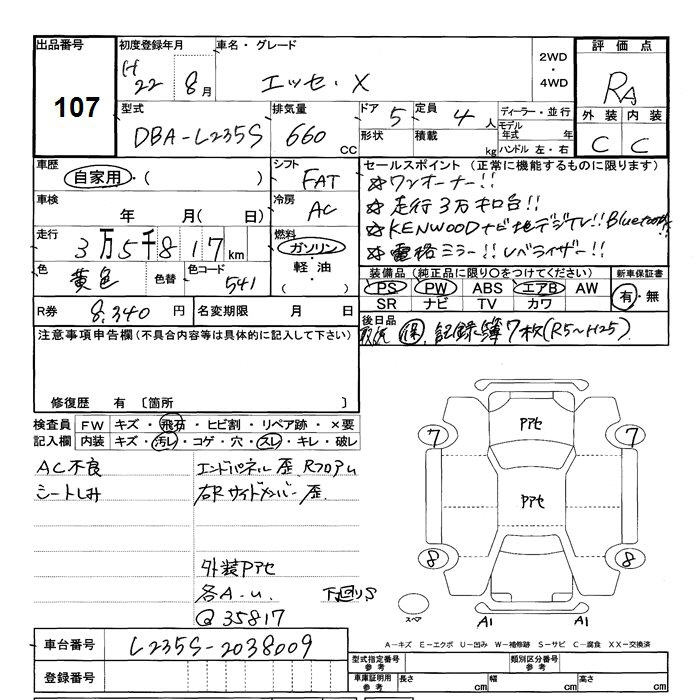 出品番号
107
初度登録年月
H22 8月
車名・グレード
エッセ・X
2WD
・
4WD
評価点
RA
外装 内装
C C
型式
DBA-L235S
排気量
660 CC
ドア 5
形状
定員 4人
積載 kg
ディーラー・並行
モデル年式 年
ハンドル 左・右
車歴
自家用・( )
シフト
FAT
車検
年 月( 日)
冷房
AC
走行
3万5千817km
燃料
ガソリン・
軽油・
( )
色
黄色
色替
色コード
541
R券 8,340円
名変期限 月 日
セールスポイント(正常に機能するものに限ります)
☆ワンオーナー!!
☆走行3万キロ台!!
☆KENWOODナビ地デジTV!!Bluetooth
☆電格ミラー!!レベライザー!!
装備品(純正品に限り○をつけてください)
PS PW ABS エアB AW
SR ナビ TV カワ
新車保証書
有・無
後日品
取説 保 記録簿7枚(R5~H25)
注意事項申告欄(不具合内容等は具体的に記入して下さい)
修復歴 有〔箇所 〕
検査員記入欄
FW キズ・飛石・ヒビ割・リペア跡・×要
内装 キズ・汚レ・コゲ・穴・スレ・キレ・破レ
AC不良
シートしみ
エンドパネル歪、RフロアU
右Rサイドメンバー歪、
外装Pアセ
各A・U、 下回りS
Q35817
7
7
Pアセ
Pアセ
8
8
スペア
A1
A1
車台番号 L235S-2038009
登録番号
A-キズ E-エクボ U-凹み W-補修跡 S-サビ C-腐食 XX-交換済
型式指定番号
参考
類別区分番号
参考
車庫証明用
参考
長さ cm
幅 cm
高さ cm